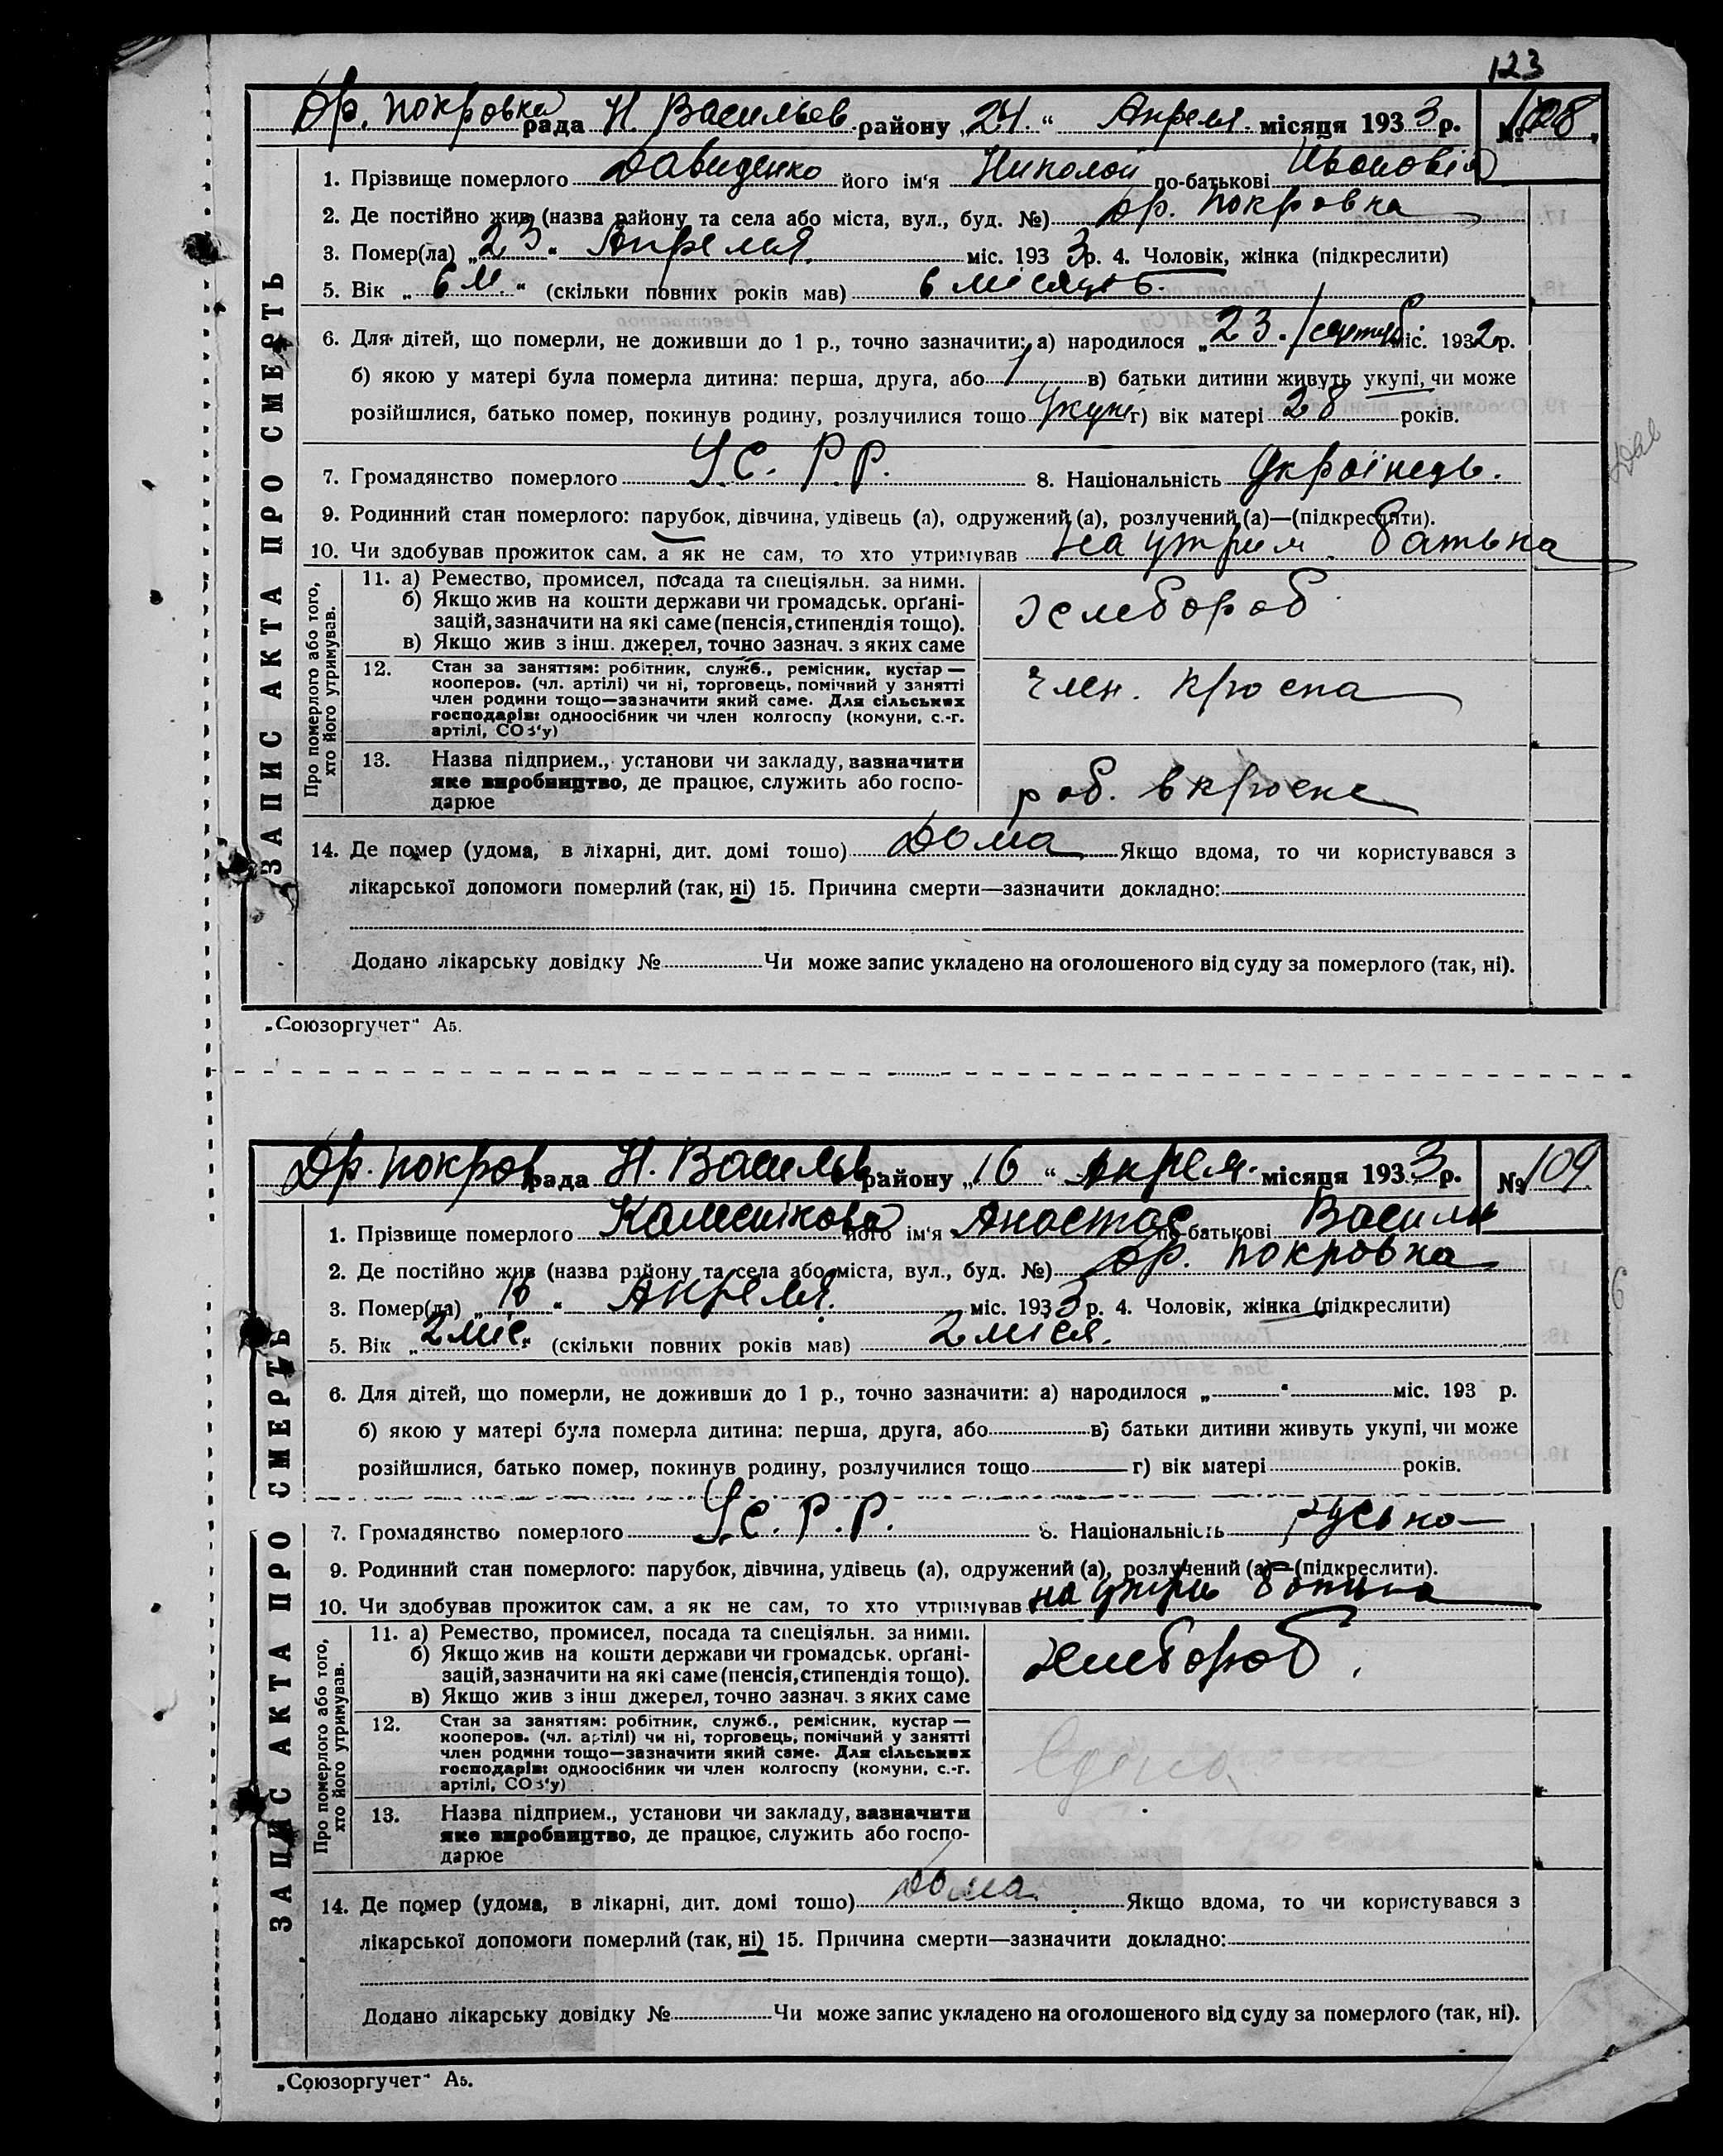 123
Др. Покровка рада Н. Васильев району „24“ Апреля місяця 1933 р. № 108
ЗАПИС АКТА ПРО СМЕРТЬ
1. Прізвище померлого Давиденко його ім‘я Николай по-батькові
2. Де постійно жив (назва району та села або міста, вул., буд. №) Др. Покровка
3. Помер(ла) „23“ Апреля міс. 1933 р. 4. Чоловік, жінка (підкреслити)
5. Вік „6 м.“ (скільки повних років мав) 6 місяців.
6. Для дітей, що померли, не доживши до 1 р., точно зазначити: а) народилося „23“ міс. 1932 р.
б) якою у матері була померла дитина: перша, друга, або 1 в) батьки дитини живуть укупі, чи може
розійшлися, батько помер, покинув родину, розлучилися тощо укупі г) вік матері 28 років.
7. Громадянство померлого УС. РР. 8. Національність Українець.
9. Родинний стан померлого: парубок, дівчина, удівець (а), одружений (а), розлучений (а)—(підкреслити).
10. Чи здобував прожиток сам, а як не сам, то хто утримував на утрим. батька
Про померлого або того, хто його утримував.
11. а) Ремество, промисел, посада та спеціяльн. за ними.
б) Якщо жив на кошти держави чи громадськ. орґані-
зацій, зазначити на які саме (пенсія, стипендія тощо).
в) Якщо жив з інш. джерел, точно зазнач. з яких саме
хлебороб
12. Стан за заняттям: робітник, служб., ремісник, кустар —
кооперов. (чл. артілі) чи ні, торговець, помічний у занятті
член родини тощо—зазначити який саме. Для сільських
господарів: одноосібник чи член колгоспу (комуни, с.-г.
артілі, СОЗ‘у)
член.
13. Назва підприєм., установи чи закладу, зазначити
яке виробництво, де працює, служить або госпо-
дарює
роб. в
14. Де помер (удома, в лікарні, дит. домі тошо) Дома Якщо вдома, то чи користувався з
лікарської допомоги померлий (так, ні) 15. Причина смерти—зазначити докладно:
Додано лікарську довідку № Чи може запис укладено на оголошеного від суду за померлого (так, ні).
„Союзоргучет“ А5.
Др. Покров рада Н. Васильв району „16“ Апреля місяця 1933 р. № 109
ЗАПИС АКТА ПРО СМЕРТЬ
1. Прізвище померлого його ім‘я Анастас по-батькові Васили
2. Де постійно жив (назва району та села або міста, вул., буд. №) Др. Покровка
3. Помер(ла) „16“ Апреля міс. 1933 р. 4. Чоловік, жінка (підкреслити)
5. Вік „2 міс.“ (скільки повних років мав) 2 міся.
6. Для дітей, що померли, не доживши до 1 р., точно зазначити: а) народилося „ “ міс. 193 р.
б) якою у матері була померла дитина: перша, друга, або в) батьки дитини живуть укупі, чи може
розійшлися, батько помер, покинув родину, розлучилися тощо г) вік матері років.
7. Громадянство померлого УС. Р.Р. 8. Національність руська
9. Родинний стан померлого: парубок, дівчина, удівець (а), одружений (а), розлучений (а)—(підкреслити).
10. Чи здобував прожиток сам, а як не сам, то хто утримував на утри батька
Про померлого або того, хто його утримував.
11. а) Ремество, промисел, посада та спеціяльн. за ними.
б) Якщо жив на кошти держави чи громадськ. орґані-
зацій, зазначити на які саме (пенсія, стипендія тощо).
в) Якщо жив з інш джерел, точно зазнач. з яких саме
хлебороб.
12. Стан за заняттям: робітник, служб., ремісник, кустар —
кооперов. (чл. артілі) чи ні, торговець, помічний у занятті
член родини тощо—зазначити який саме. Для сільських
господарів: одноосібник чи член колгоспу (комуни, с.-г.
артілі, СОЗ‘у)
13. Назва підприєм., установи чи закладу, зазначити
яке виробництво, де працює, служить або госпо-
дарює
14. Де помер (удома, в лікарні, дит. домі тошо) Дома Якщо вдома, то чи користувався з
лікарської допомоги померлий (так, ні) 15. Причина смерти—зазначити докладно:
Додано лікарську довідку № Чи може запис укладено на оголошеного від суду за померлого (так, ні).
„Союзоргучет“ А5.